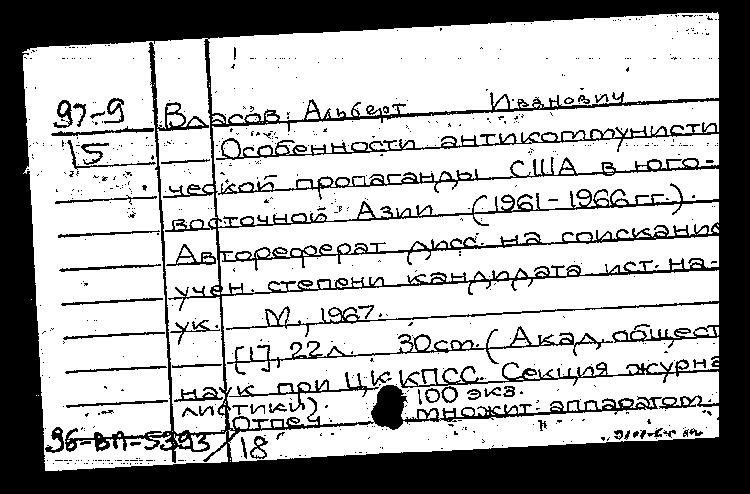 97-9 Власов, Альберт Иванович
15 Особенности антикоммунисти
ческой пропаганды США в юго-
восточной Азии (1961-1966 гг.).
Автореферат дисс. на соискание
учен. степени кандидата ист. на-
ук. М., 1967.
[1], 22 л. 30 см. (Акад. общест
наук при ЦК КПСС. Секция журна
листики). 100 экз.
Отпеч. множит. аппаратом.
96-ВП-5393 / 18